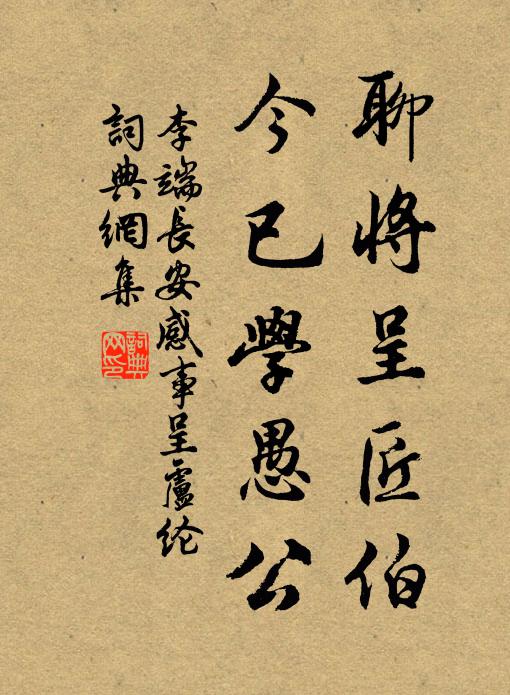 聊將呈匠伯
今已學愚公
李端長安感事呈盧纶
詞典網集
詞典網印